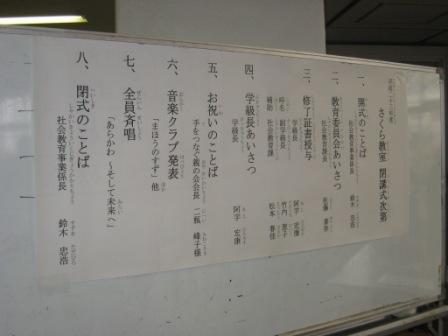 さくら教室 閉講式次第
一、開式のことば
社会教育事業係長 鈴木 忠浩
二、教育委員会あいさつ
社会教育課長
三、修了証書授与
学級長 阿字 宏康
呼名 副学級長 竹内 恵子
補助 社会教育課 松本 春佳
四、学級長あいさつ
学級長 阿字 宏康
五、お祝いのことば
手をつなぐ親の会会長 二瓶 峰子様
六、音楽クラブ発表
「まほうのすず」他
七、全員斉唱
「あらかわ〜そして未来へ」
八、閉式のことば
社会教育事業係長 鈴木 忠浩